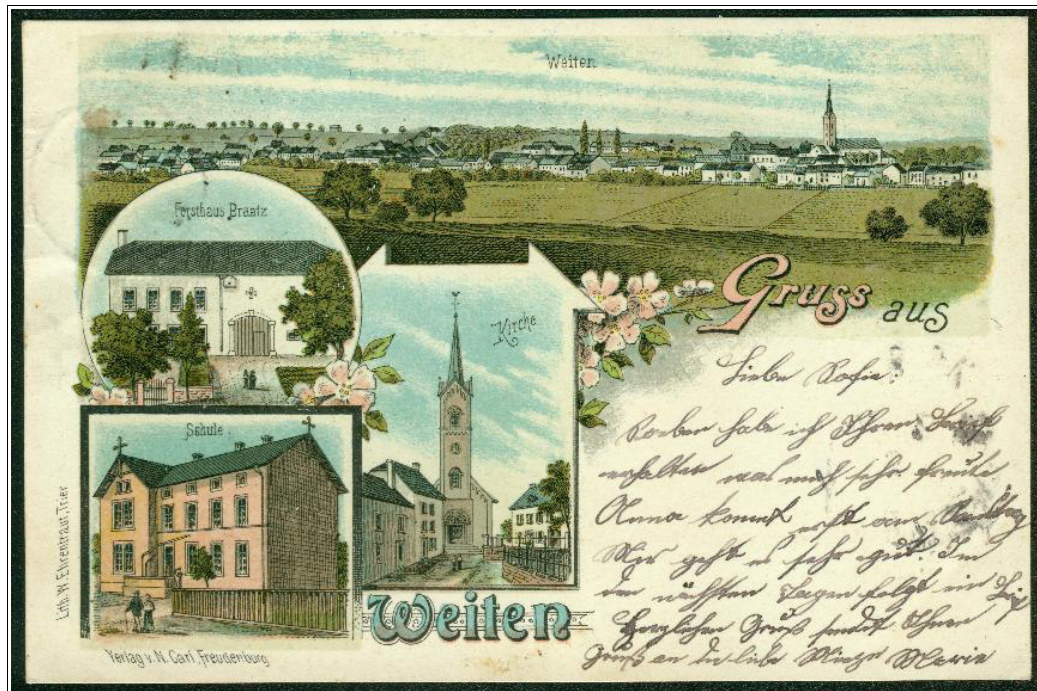 Weiten
Forsthaus Braatz
Kirche
Gruss aus
Schule
Weiten
Lith. W. Ehrentraut, Trier
Verlag v. N. Carl, Freudenburg
Liebe Sofie!
Soeben habe ich Ihren Brief
erhalten was mich sehr freute
Anna kommt erst am Samstag
Mir geht es sehr gut. In
den nächsten Tagen folgt ein
Herzlichen Gruß sendet Ihnen
Gruß an die liebe Marie